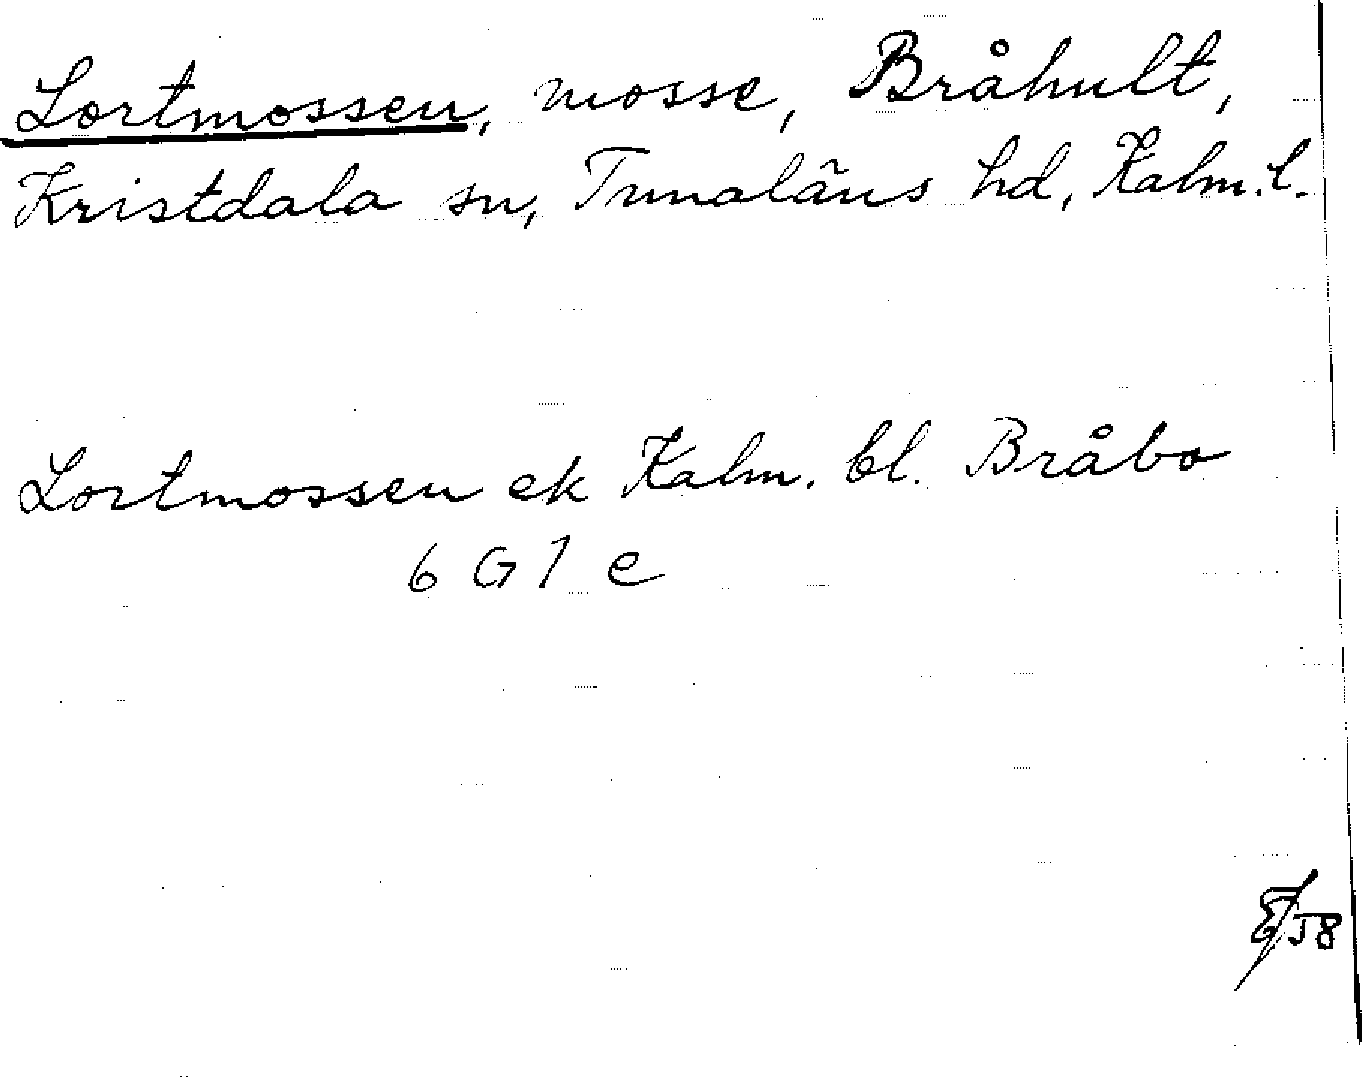 Lortmossen, mosse, Bråhult,
Kristdala sn, Tunaläns hd, Kalm. l.
Lortmossen ek Kalm. bl. Bråbo
6 G 7 e